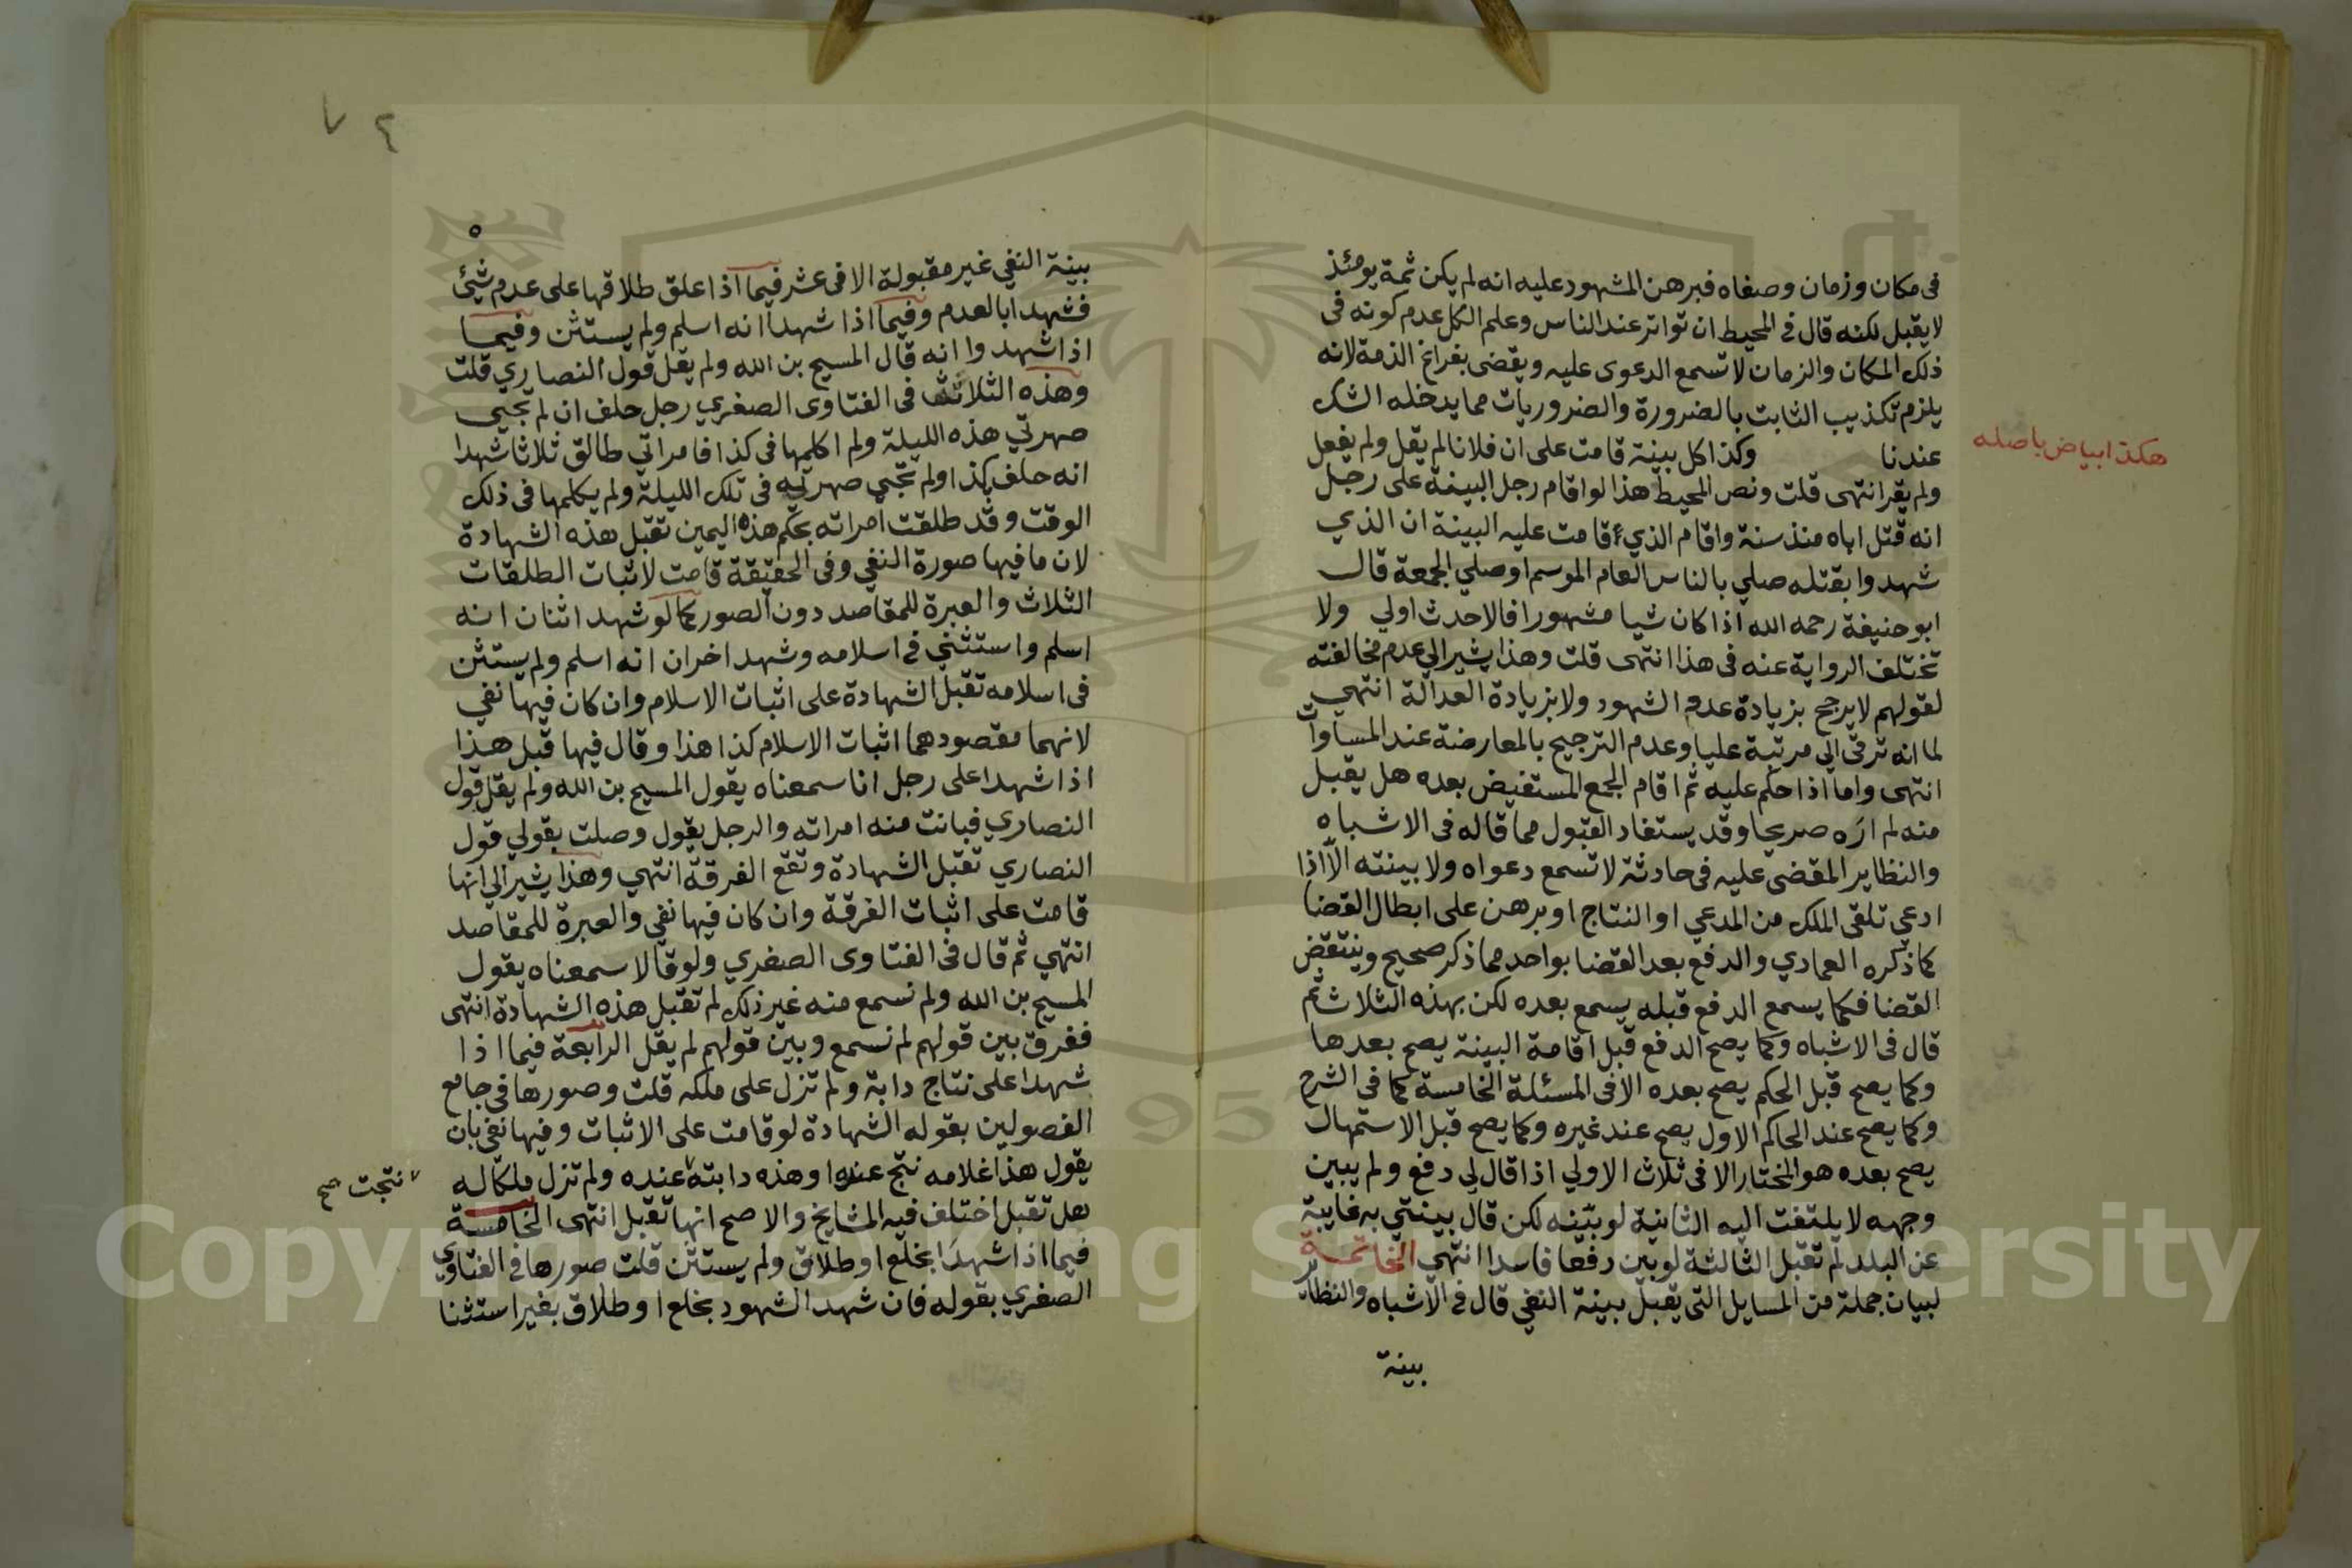 فى مكان وزمان وصفاه فبرهن المشهود عليه انه لم يكن ثمة يومئذ
لا يقبل لكنه قال في المحيط ان تواتر عند الناس وعلم الكل عدم كونه فى
ذلك المكان والزمان لا تسمع الدعوى عليه ويقضى بفراغ الذمة لانه
يلزم تكذيب الثابت بالضرورة والضروريات مما يدخله الشك
عندنا وكذا كل بينة قامت على ان فلانا لم يقل ولم يفعل
هكذا بياض باصله
ولم يقر انتهى قلت ونص المحيط هذا لو اقام رجل البينة على رجل
انه قتل اباه منذ سنة واقام الذي قامت عليه البينة ان الذي
شهدوا بقتله صلي بالناس العام الموسم او صلي الجمعة قال
ابو حنيفة رحمه الله اذا كان شيا مشهورا فالاحدث اولي ولا
تختلف الرواية عنه فى هذا انتهى قلت وهذا يشير الي عدم مخالفته
لقولهم لا يرجح بزيادة عدد الشهود ولا بزيادة العدالة انتهي
لما انه ترقي الي مرتبة عليا وعدم الترجيح بالمعارضة عند المساوات
انتهى واما اذا حكم عليه ثم اقام الجمع المستفيض بعده هل يقبل
منه لم اره صريحا وقد يستفاد القبول مما قاله فى الاشباه
والنظاير المقضى عليه فى حادثة لا تسمع دعواه ولا بينته الا اذا
ادعي تلقى الملك من المدعي او النتاج او برهن على ابطال القضا
كما ذكره العمادي والدفع بعد القضا بواحد مما ذكر صحيح وينتقض
القضا فكما يسمع الدفع قبله يسمع بعده لكن بهذه الثلاث ثم
قال فى الاشباه وكما يصح الدفع قبل اقامة البينة يصح بعدها
وكما يصح قبل الحكم يصح بعده الا فى المسئلة الخامسة كما فى الشرح
وكما يصح عند الحاكم الاول يصح عند غيره وكما يصح قبل الاستمهال
يصح بعده هو المختار الا فى ثلاث الاولي اذا قال لي دفع ولم يبين
وجهه لا يلتفت اليه الثانية لو بينه لكن قال بينتي به غايبة
عن البلد لم تقبل الثالثة لو بين دفعا فاسدا انتهي الخاتمة
لبيان جملة من المسايل التى يقبل بينة النفي قال في الاشباه والنظاير
بينة
٥
بينة النفي غير مقبولة الا فى عشر فيما اذا علق طلاقها على عدم شيئ
فشهدا بالعدم وفيما اذا شهدا انه اسلم ولم يستثن وفيما
اذا شهدوا انه قال المسيح بن الله ولم يقل قول النصاري قلت
وهذه الثلاثة فى الفتاوى الصغري رجل حلف ان لم تجيى
صهرتي هذه الليلة ولم اكلمها فى كذا فامراتي طالق ثلاثا شهدا
انه حلف كذا ولم تجي صهرته فى تلك الليلة ولم يكلمها فى ذلك
الوقت وقد طلقت امراته بحكم هذه اليمين تقبل هذه الشهادة
لان ما فيها صورة النفي وفى الحقيقة قامت لاثبات الطلقات
الثلاث والعبرة للمقاصد دون الصور كما لو شهد اثنان انه
اسلم واستثني في اسلامه وشهد اخران انه اسلم ولم يستثن
فى اسلامه تقبل الشهادة على اثبات الاسلام وان كان فيها نفي
لانهما مقصودهما اثبات الاسلام كذا هذا وقال فيها قبل هذا
اذا شهدا على رجل انا سمعناه يقول المسيح بن الله ولم يقل قول
النصاري فبانت منه امراته والرجل يقول وصلت بقولي قول
النصاري تقبل الشهادة وتقع الفرقة انتهي وهذا يشير الي انها
قامت على اثبات الفرقة وان كان فيها نفي والعبرة للمقاصد
انتهي ثم قال فى الفتاوى الصغري ولو قالا سمعناه يقول
المسيح بن الله ولم نسمع منه غير ذلك لم تقبل هذه الشهادة انتهى
ففرق بين قولهم لم نسمع وبين قولهم لم يقل الرابعة فيما اذا
شهدا على نتاج دابة ولم تزل على ملكه قلت وصورها في جامع
الفصولين بقوله الشهادة لو قامت على الاثبات وفيها نفي بان
يقول هذا غلامه نتج عنده او هذه دابته عنده ولم تزل ملكا له
نتجت صح
هل تقبل اختلف فيه المشايخ والاصح انها تقبل انتهى الخامسة
فيما اذا شهدا بخلع او طلاق ولم يستثن قلت صورها في الفتاوي
الصغري بقوله فان شهد الشهود بخلع او طلاق بغير استثنا
Copyright © King Saud University